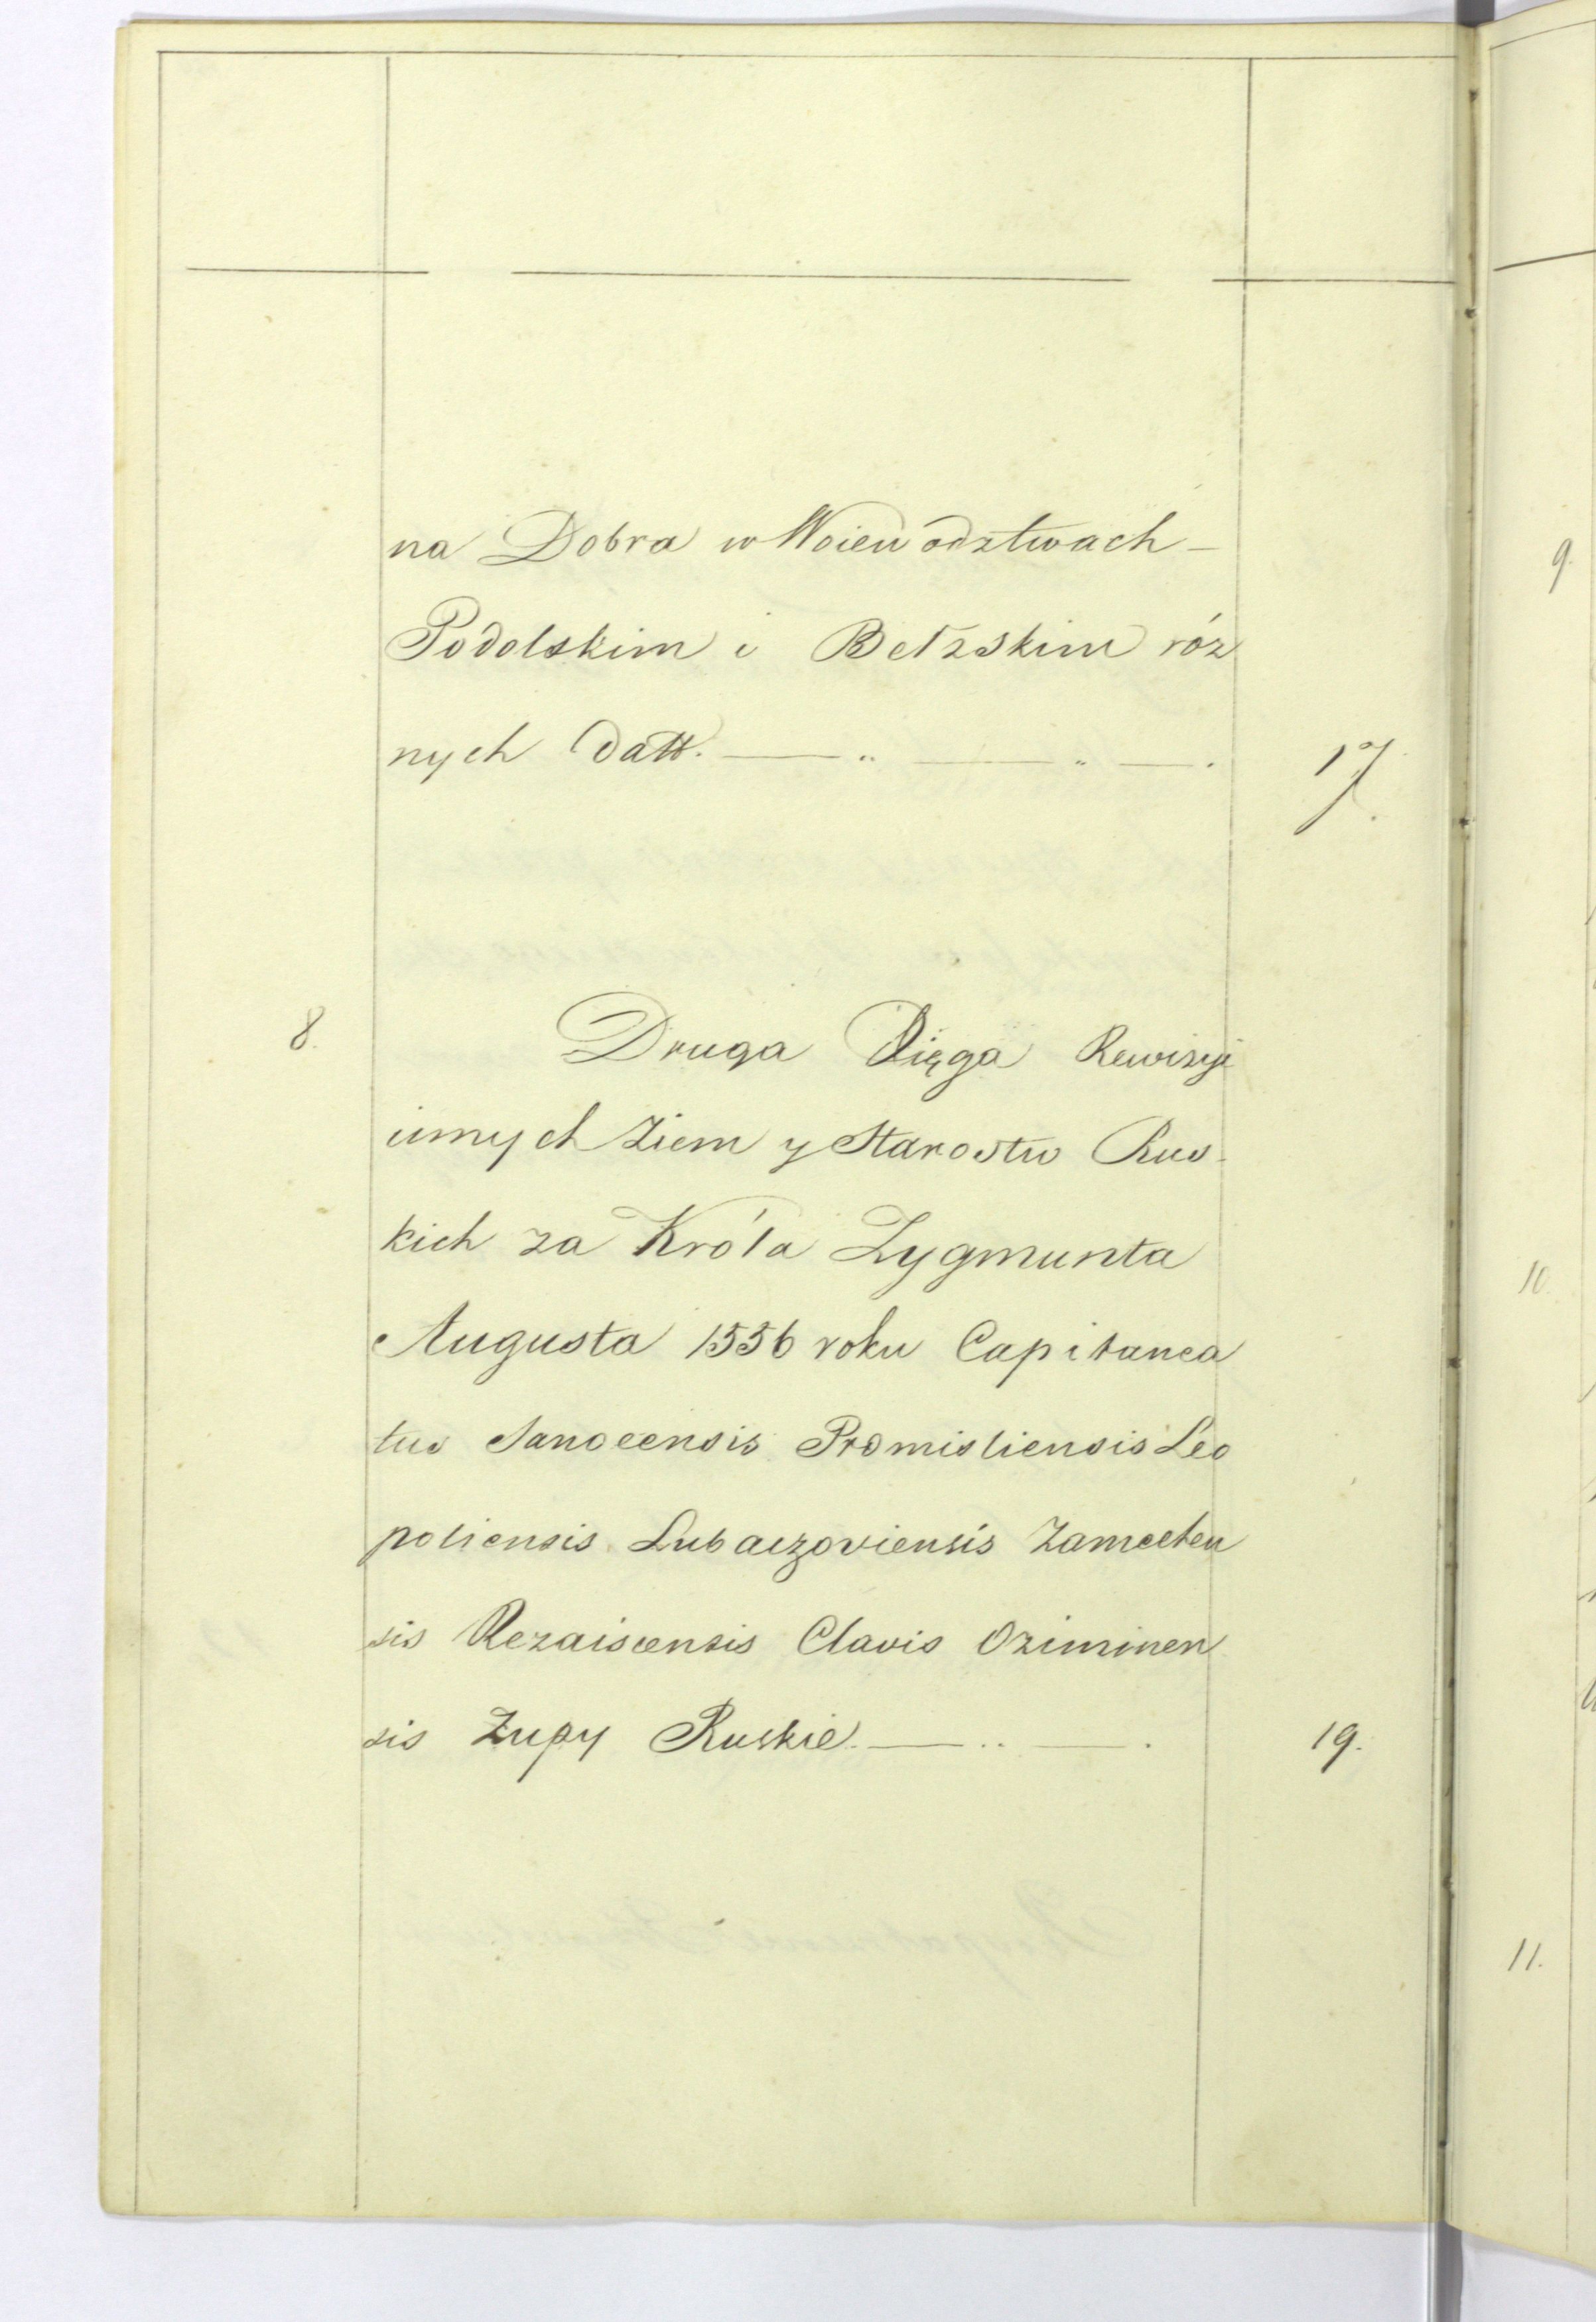 na Dobra w Woiewództwach –
Podolskim i Bełzskim róz
nych datt. — „ — „ — . 17.
8. Druga Xięga Rewizyi
innych Ziem y Starostw Rus-
kich za Króla Zygmunta
Augusta 1556 roku Capitanea
tus Sanocensis Premisliensis Leo
poliensis Lubaczoviensis Zamechen
sis Rezaiscensis Clavis Oziminen
sis Zupy Ruskie. — .. — . 19.
9.
10.
11.